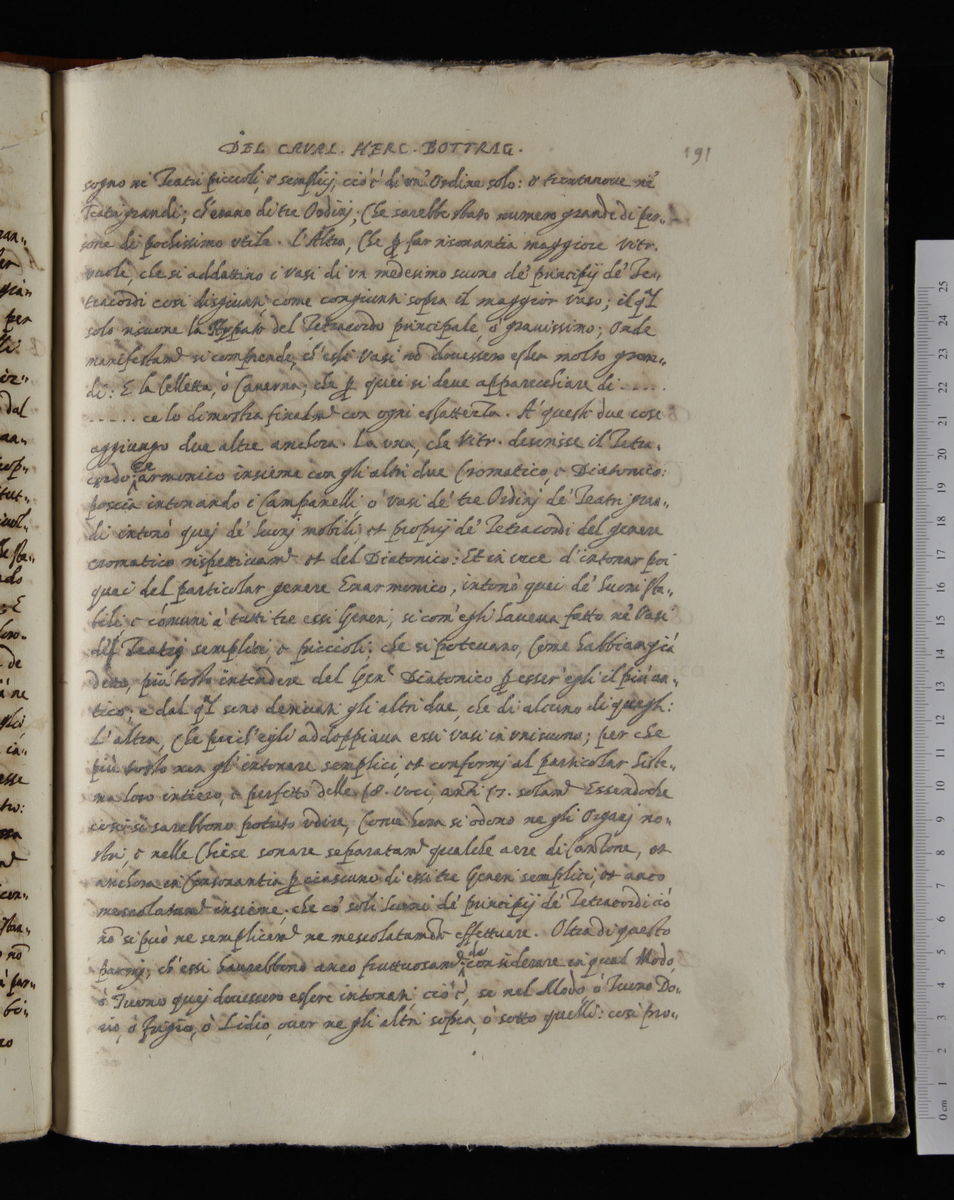 DEL CAVAL. HERC. BOTTRIG.
191
sogno ne' Teatri piccioli, et semplicj, cio è di un' Ordine solo: et trentanove ne'
Teatri grandi; ch'erano di tre Ordinj; Che sarebbe stato numero grande di per-
sone di pochissimo utile. L'Altra, Che p far risonantia maggiore Vitr.
vuole, che si addattino i vasi di un medesimo suono de' principij de' Te-
tracordi così disgiunti come congiunti sopra il maggior vaso; il ql
solo risuone la Hypate del Tetracordo principale, o gravissimo; Onde
manifestamte si comprende, ch'essi Vasi nō dovessero esser molto gran-
di: E la Celletta, o Caverna; che p quei si deve apparecchiare di .....
...... ce lo dimostra finalmte con ogni esattezza. A' questi due cose
aggiungo due altre anchora. La una, che Vitr. descrisse il Tetra-
cordo Enarmonico insieme con gli altri due Cromatico, e Diatonico:
poscia intonando i Campanelli o vasi de' tre Ordinj de' Teatri gran-
di intonò quej de' suonj mobili et proprij de' Tetracordi del genere
cromatico rispettivamte et del Diatonico: Et in vece d'intonar poi
quei del particolar genere Enarmonico, intonò quei de' suoni sta-
bili e cōmuni à tutti tre essi Generi, si com'egli haveva fatto ne' Vasi
de' Teatrj semplici, e piccioli; che si potevano, Come habbiam già
detto, più tosto intendere del Gen. Diatonico p esser egli il più an-
tico; e dal ql sono derivati gli altri due, che di alcuno di quegli:
L'altra, Che perch'egli addoppiava essi vasi in unisuono; per che
più tosto non gli intonare semplici, et conformj al particolar Siste-
ma loro intiero, e perfetto delle 18. voci, anzi 17. solamte Essendoche
così si sarebbono potuto udire, Come hora si odono ne gli Organj no-
stri, e nelle Chiese sonare separatamte qualche aere di Canzone, et
anchora in Consonantia p ciascuno di essi tre Generi semplici, et anco
mescolatamte insieme; che co' soli suoni de' principij de' Tetracordi ciò
nō si può ne semplicemte ne mescolatamte effettuare. Oltra di questo
parmj, ch'essi haurebbono anco fruttuosamte considerare in qual Modo,
ò Tuono quej dovessero essere intonati, cio è, se nel Modo ò Tuono Do-
rio, ò frigio, ò Lidio, over ne gli altri sopra, ò sotto quelli: così pro-